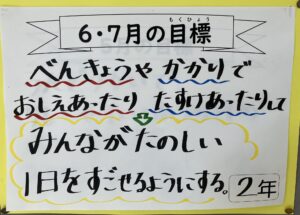 6・7月の目標
もくひょう
べんきょうや かかりで
おしえあったり たすけあったりして
みんながたのしい
1日をすごせるようにする。
2年